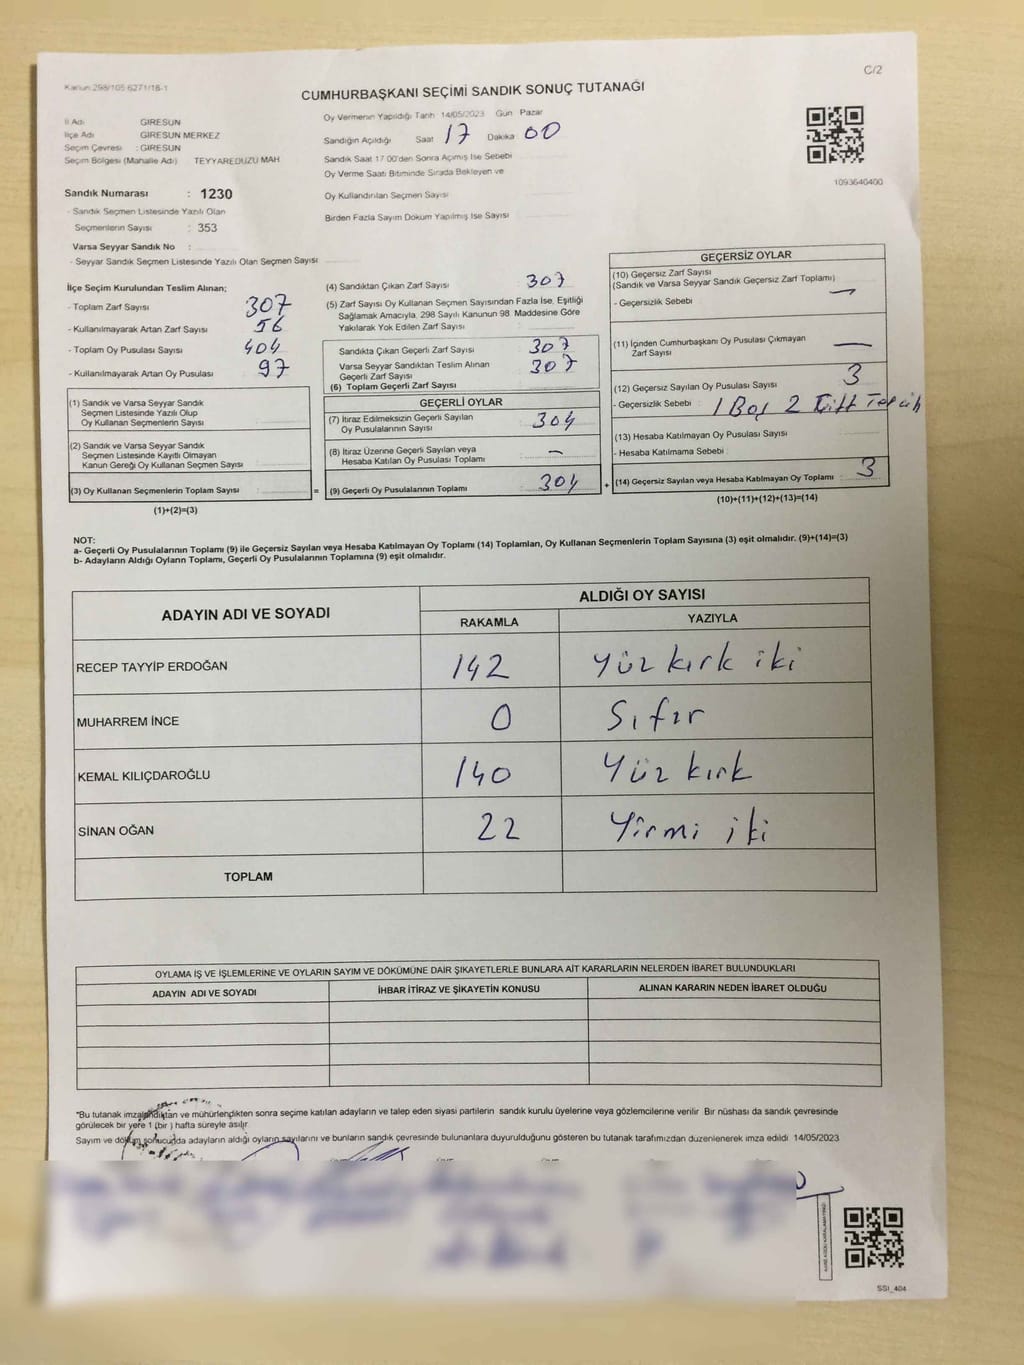 C/2
Kanun 298/105 6271/18-1
CUMHURBAŞKANI SEÇİMİ SANDIK SONUÇ TUTANAĞI
İl Adı GİRESUN
İlçe Adı GİRESUN MERKEZ
Seçim Çevresi : GİRESUN
Seçim Bölgesi (Mahalle Adı) TEYYAREDÜZÜ MAH
Sandık Numarası : 1230
- Sandık Seçmen Listesinde Yazılı Olan
Seçmenlerin Sayısı : 353
Varsa Seyyar Sandık No :
- Seyyar Sandık Seçmen Listesinde Yazılı Olan Seçmen Sayısı
Oy Vermenin Yapıldığı Tarih 14/05/2023 Gün Pazar
Sandığın Açıldığı Saat 17 Dakika 00
Sandık Saat 17 00'den Sonra Açımış İse Sebebi
Oy Verme Saati Bitiminde Sırada Bekleyen ve
Oy Kullandırılan Seçmen Sayısı
Birden Fazla Sayım Döküm Yapılmış İse Sayısı
1093640400
İlçe Seçim Kurulundan Teslim Alınan;
- Toplam Zarf Sayısı 307
- Kullanılmayarak Artan Zarf Sayısı 56
- Toplam Oy Pusulası Sayısı 404
- Kullanılmayarak Artan Oy Pusulası 97
(1) Sandık ve Varsa Seyyar Sandık
Seçmen Listesinde Yazılı Olup
Oy Kullanan Seçmenlerin Sayısı :
(2) Sandık ve Varsa Seyyar Sandık
Seçmen Listesinde Kayıtlı Olmayan
Kanun Gereği Oy Kullanan Seçmen Sayısı
(3) Oy Kullanan Seçmenlerin Toplam Sayısı :
(1)+(2)=(3)
=
(4) Sandıktan Çıkan Zarf Sayısı 307
(5) Zarf Sayısı Oy Kullanan Seçmen Sayısından Fazla İse, Eşitliği
Sağlamak Amacıyla, 298 Sayılı Kanunun 98. Maddesine Göre
Yakılarak Yok Edilen Zarf Sayısı :
Sandıkta Çıkan Geçerli Zarf Sayısı 307
Varsa Seyyar Sandıktan Teslim Alınan 307
Geçerli Zarf Sayısı
(6) Toplam Geçerli Zarf Sayısı
GEÇERLİ OYLAR
(7) İtiraz Edilmeksizin Geçerli Sayılan
Oy Pusulalarının Sayısı : 304
(8) İtiraz Üzerine Geçerli Sayılan veya
Hesaba Katılan Oy Pusulası Toplamı : –
(9) Geçerli Oy Pusulalarının Toplamı : 304
+
GEÇERSİZ OYLAR
(10) Geçersiz Zarf Sayısı
(Sandık ve Varsa Seyyar Sandık Geçersiz Zarf Toplamı)
- Geçersizlik Sebebi : —
(11) İçinden Cumhurbaşkanı Oy Pusulası Çıkmayan
Zarf Sayısı —
(12) Geçersiz Sayılan Oy Pusulası Sayısı 3
- Geçersizlik Sebebi : 1 Boş 2 Çift Tercih
(13) Hesaba Katılmayan Oy Pusulası Sayısı
- Hesaba Katılmama Sebebi
(14) Geçersiz Sayılan veya Hesaba Katılmayan Oy Toplamı : 3
(10)+(11)+(12)+(13)=(14)
NOT:
a- Geçerli Oy Pusulalarının Toplamı (9) ile Geçersiz Sayılan veya Hesaba Katılmayan Oy Toplamı (14) Toplamları, Oy Kullanan Seçmenlerin Toplam Sayısına (3) eşit olmalıdır. (9)+(14)=(3)
b- Adayların Aldığı Oyların Toplamı, Geçerli Oy Pusulalarının Toplamına (9) eşit olmalıdır.
ADAYIN ADI VE SOYADI ALDIĞI OY SAYISI
RAKAMLA YAZIYLA
RECEP TAYYİP ERDOĞAN 142 Yüz kırk iki
MUHARREM İNCE 0 Sıfır
KEMAL KILIÇDAROĞLU 140 Yüz kırk
SİNAN OĞAN 22 Yirmi iki
TOPLAM
OYLAMA İŞ VE İŞLEMLERİNE VE OYLARIN SAYIM VE DÖKÜMÜNE DAİR ŞİKAYETLERLE BUNLARA AİT KARARLARIN NELERDEN İBARET BULUNDUKLARI
ADAYIN ADI VE SOYADI İHBAR İTİRAZ VE ŞİKAYETİN KONUSU ALINAN KARARIN NEDEN İBARET OLDUĞU
*Bu tutanak imzalandıktan ve mühürlendikten sonra seçime katılan adayların ve talep eden siyasi partilerin sandık kurulu üyelerine veya gözlemcilerine verilir Bir nüshası da sandık çevresinde
görülecek bir yere 1 (bir ) hafta süreyle asılır.
Sayım ve döküm sonucunda adayların aldığı oyların sayılarını ve bunların sandık çevresinde bulunanlara duyurulduğunu gösteren bu tutanak tarafımızdan düzenlenerek imza edildi 14/05/2023
SSI_404